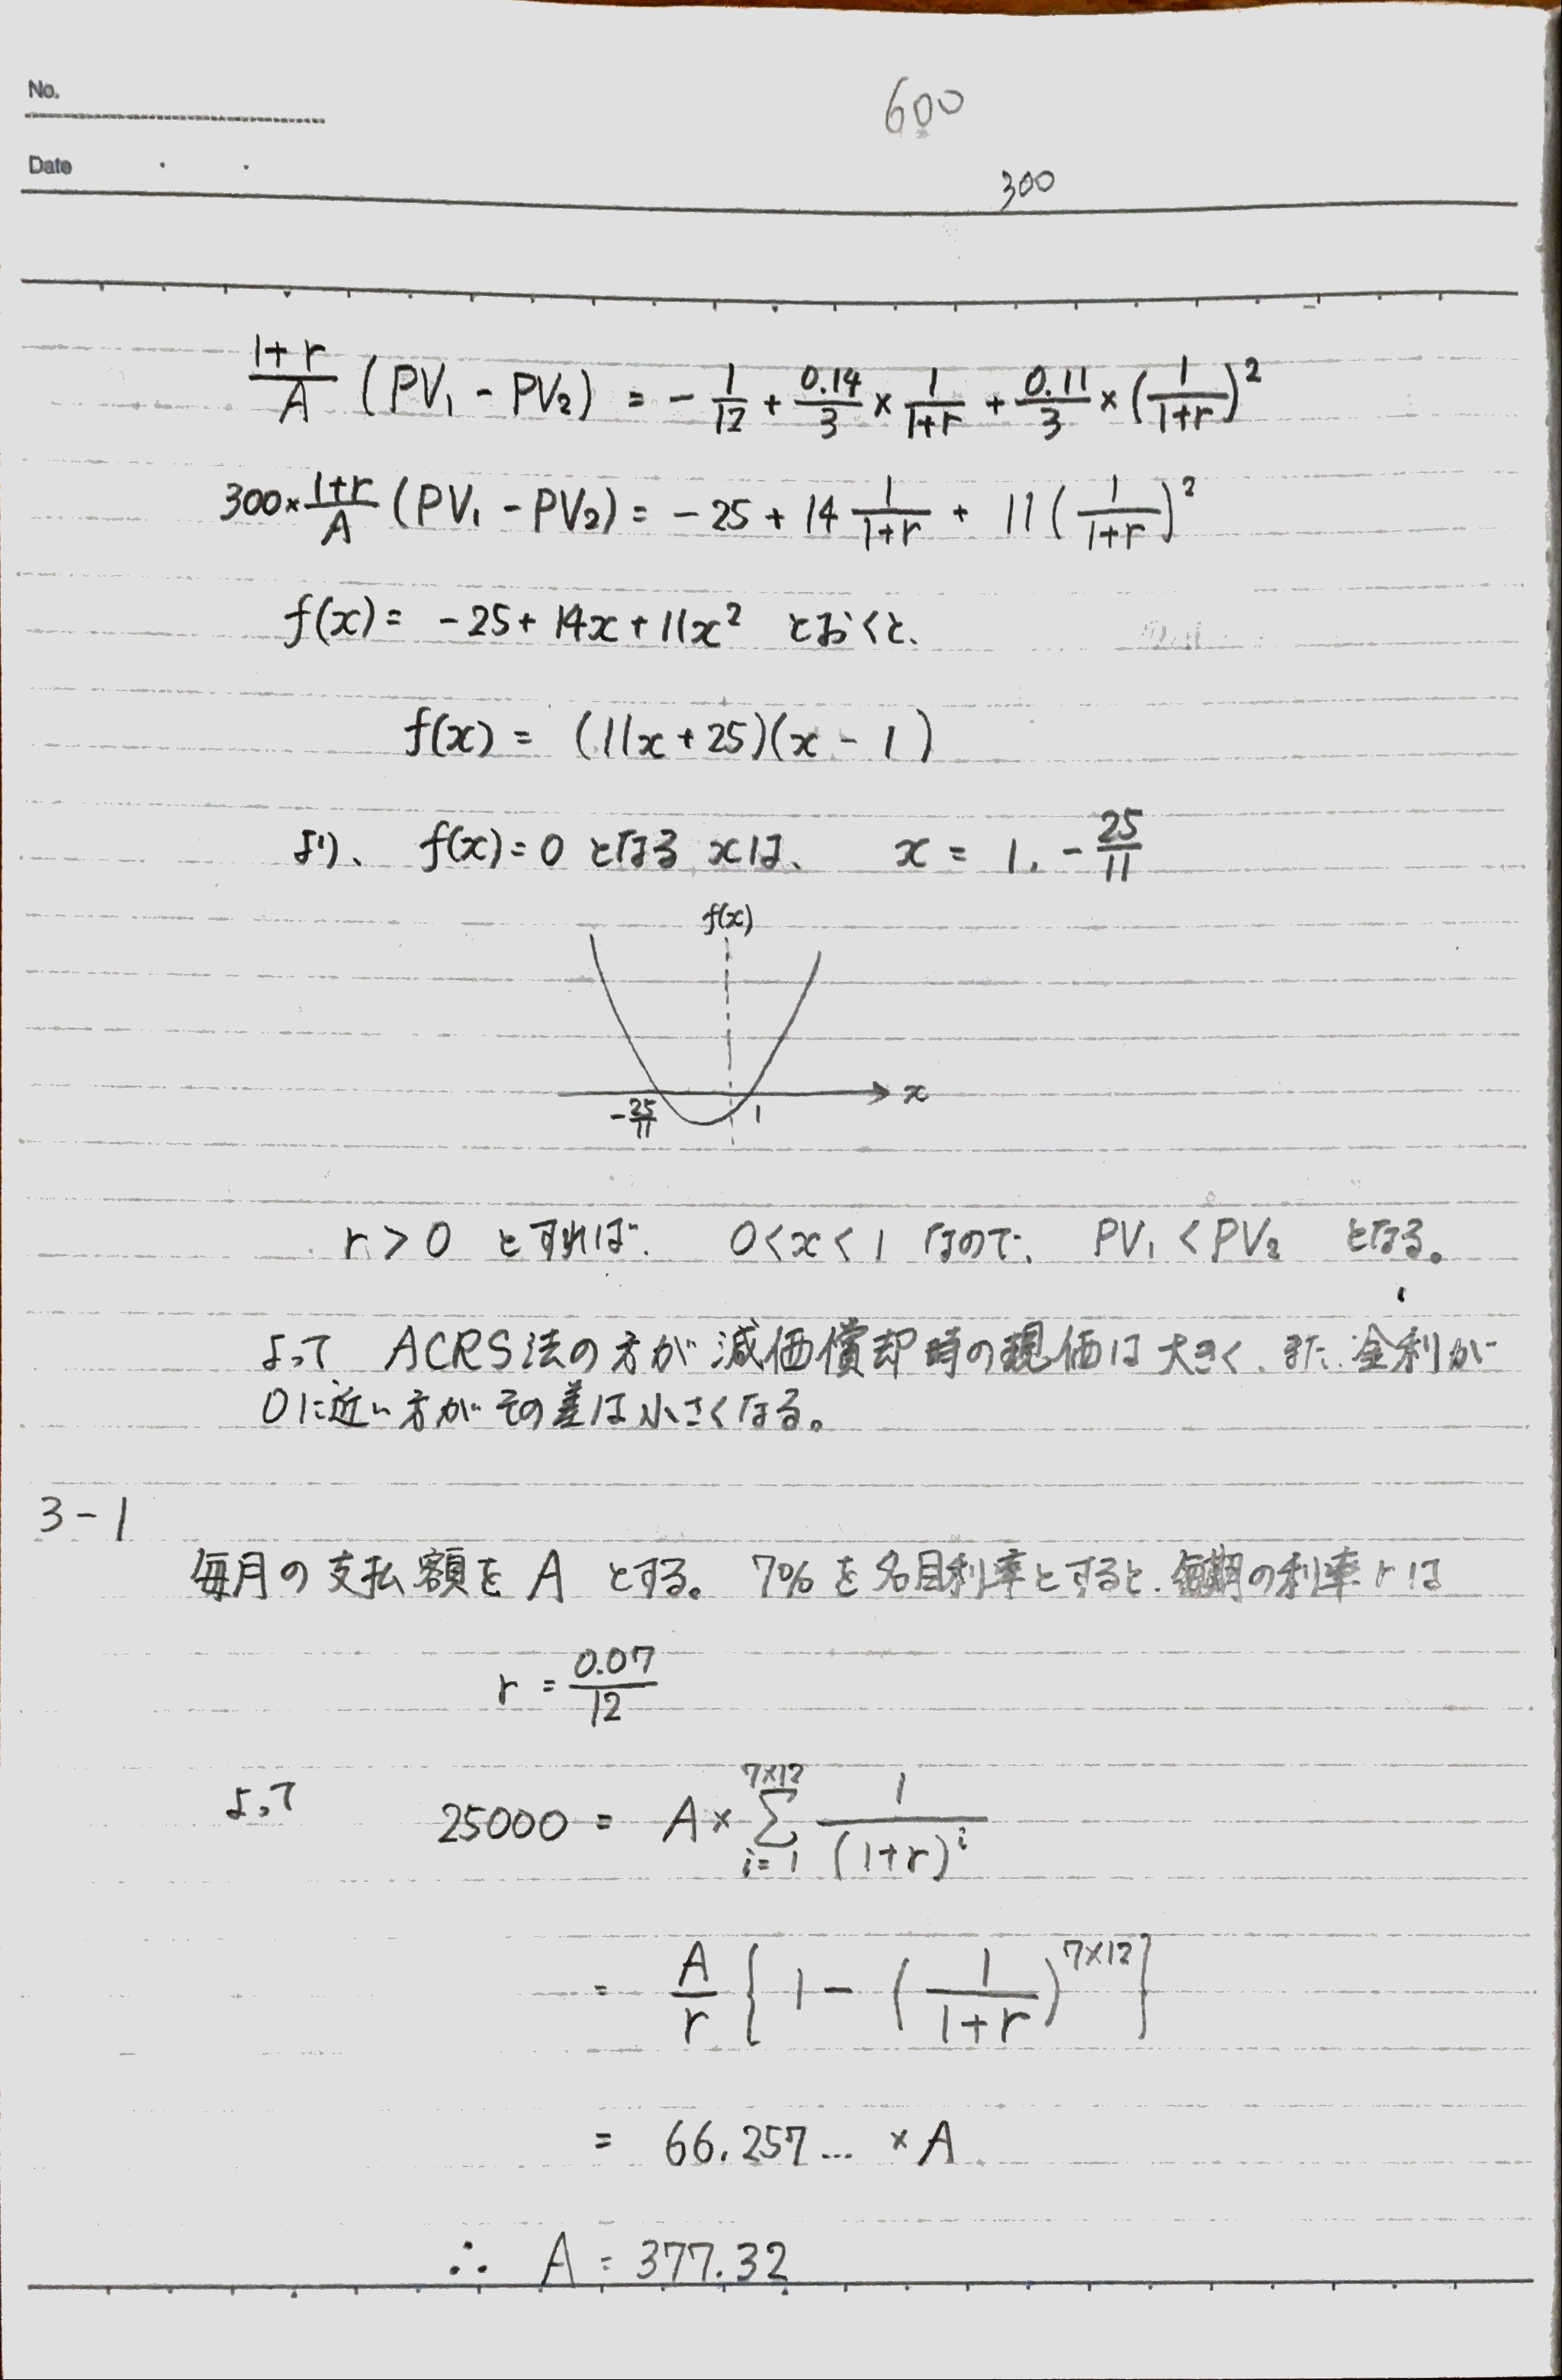 No.
600
Date
300
(1+r)/A (PV₁ - PV₂) = - 1/12 + 0.14/3 × 1/(1+r) + 0.11/3 × (1/(1+r))²
300 × (1+r)/A (PV₁ - PV₂) = - 25 + 14 1/(1+r) + 11 (1/(1+r))²
f(x) = -25 + 14x + 11x² とおくと、
f(x) = (11x + 25)(x - 1)
より、 f(x) = 0 となる xは、 x = 1, - 25/11
f(x)
x
- 25/11
1
r > 0 とすれば、 0 < x < 1 なので、 PV₁ < PV₂ となる。
よって ACRS法の方が減価償却時の現価は大きく、また、金利が
0に近い方がその差は小さくなる。
3-1
毎月の支払額を A とする。 7% を名目利率とすると、毎期の利率 r は
r = 0.07/12
よって 25000 = A × Σ_{i=1}^{7×12} 1/(1+r)^i
= A/r { 1 - (1/(1+r))^{7×12} }
= 66.257... × A
∴ A = 377.32